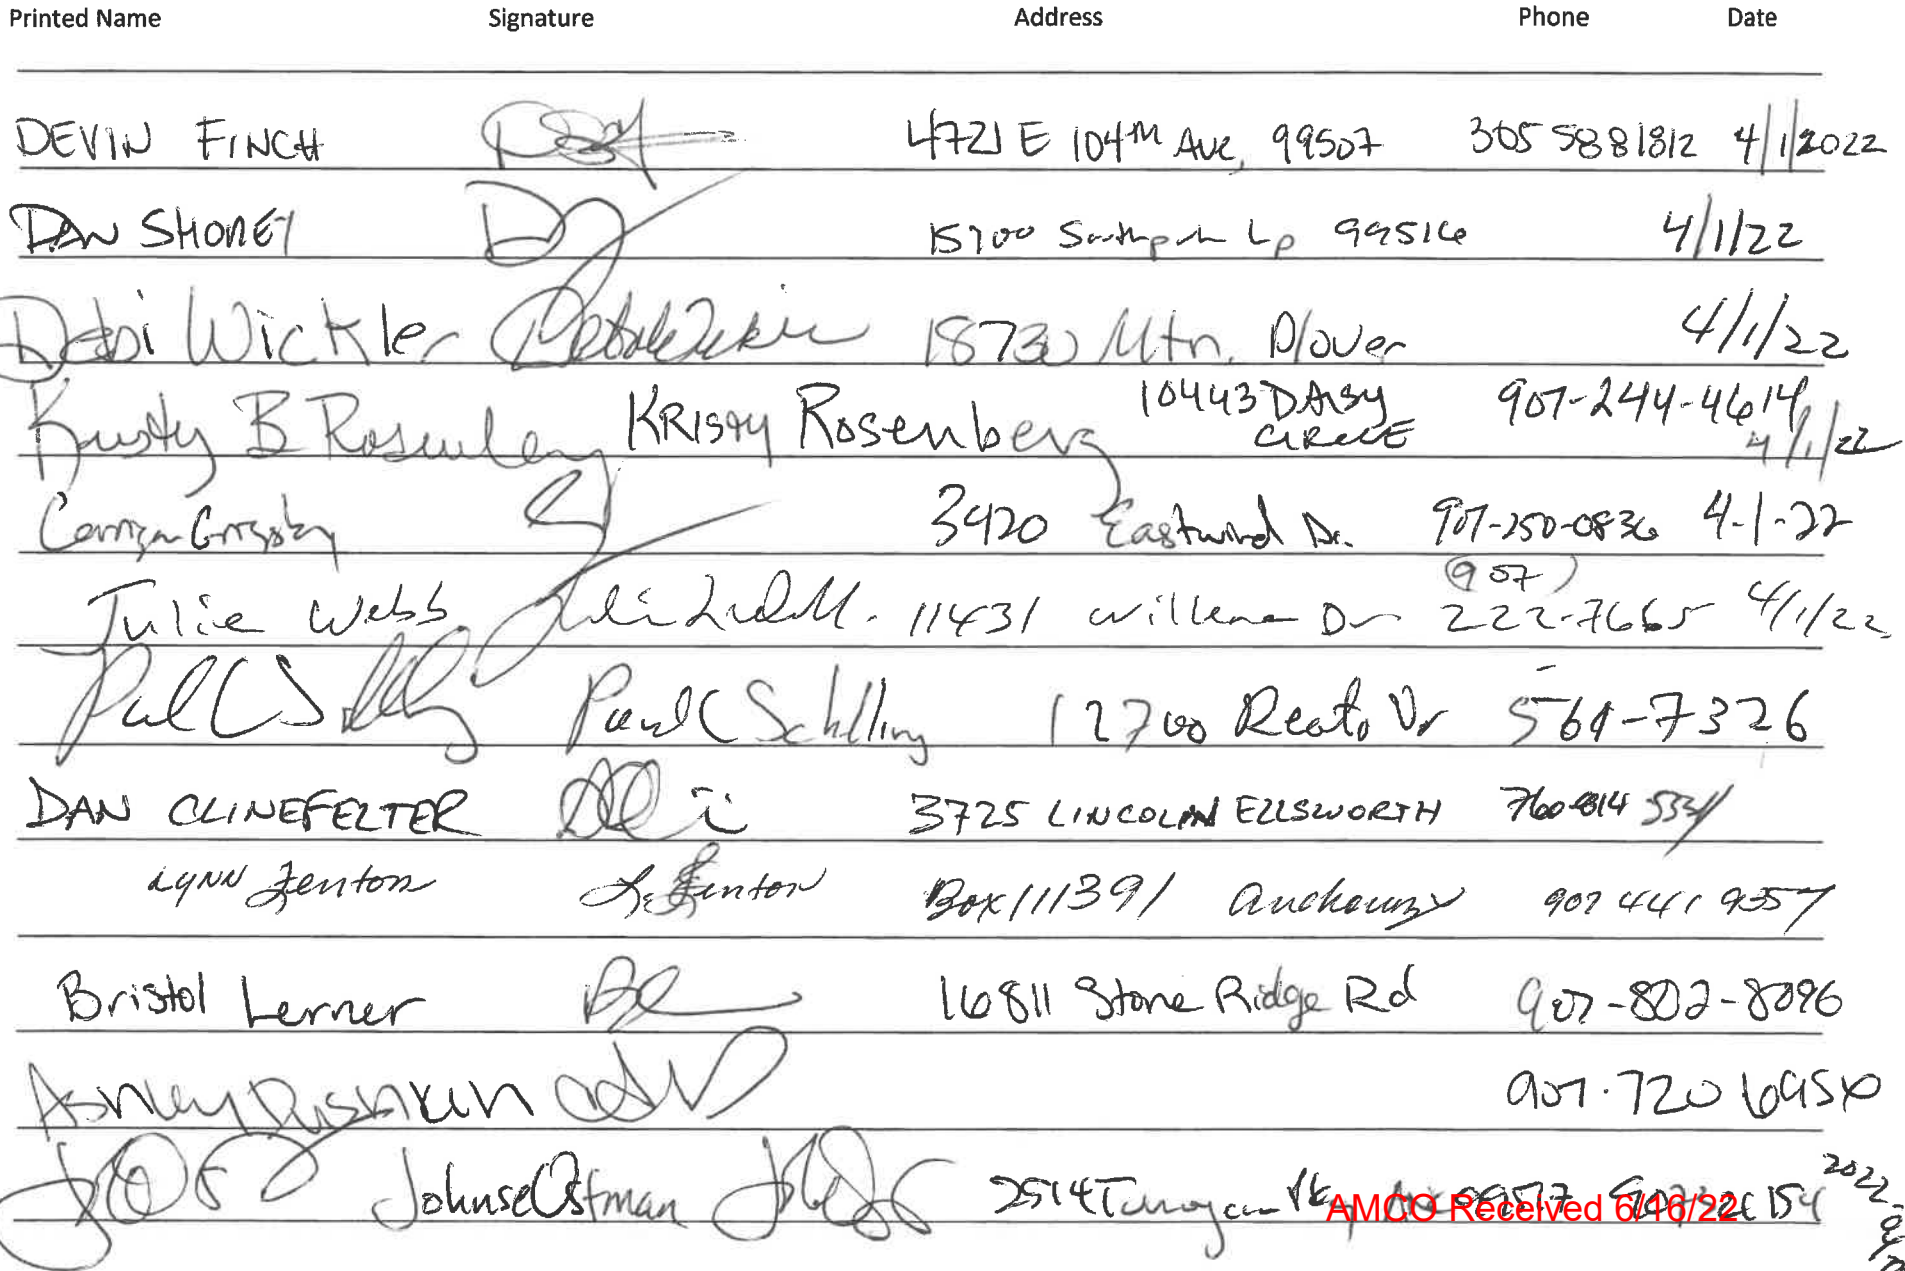 Printed Name Signature Address Phone Date
DEVIN FINCH 4721 E 104TH Ave, 99507 305 588 1812 4/1/2022
DAN SHOREY 15700 Lp 99516 4/1/22
Debi Wickler 18730 Mtn. Plover 4/1/22
Kristy B Rosenberg KRISTY Rosenberg 10443 DAISY CIRCLE 907-244-4614 4/1/22
Corrigan Grigsby 3420 Eastwind Dr. 907-250-0836 4-1-22
Julie Webb 11431 Willene Dr (907) 222-7665 4/1/22
Paul C Schilling 12700 Reata Dr 561-7326
DAN CLINEFELTER 3725 LINCOLN ELLSWORTH 760-814
LYNN Fenton L. Fenton Box 111391 Anchorage 907 441 9357
Bristol Lerner 16811 Stone Ridge Rd 907-802-8096
Ashley 907.720 6956
Johnse Ostman 2514 99517 2022
AMCO Received 6/16/22